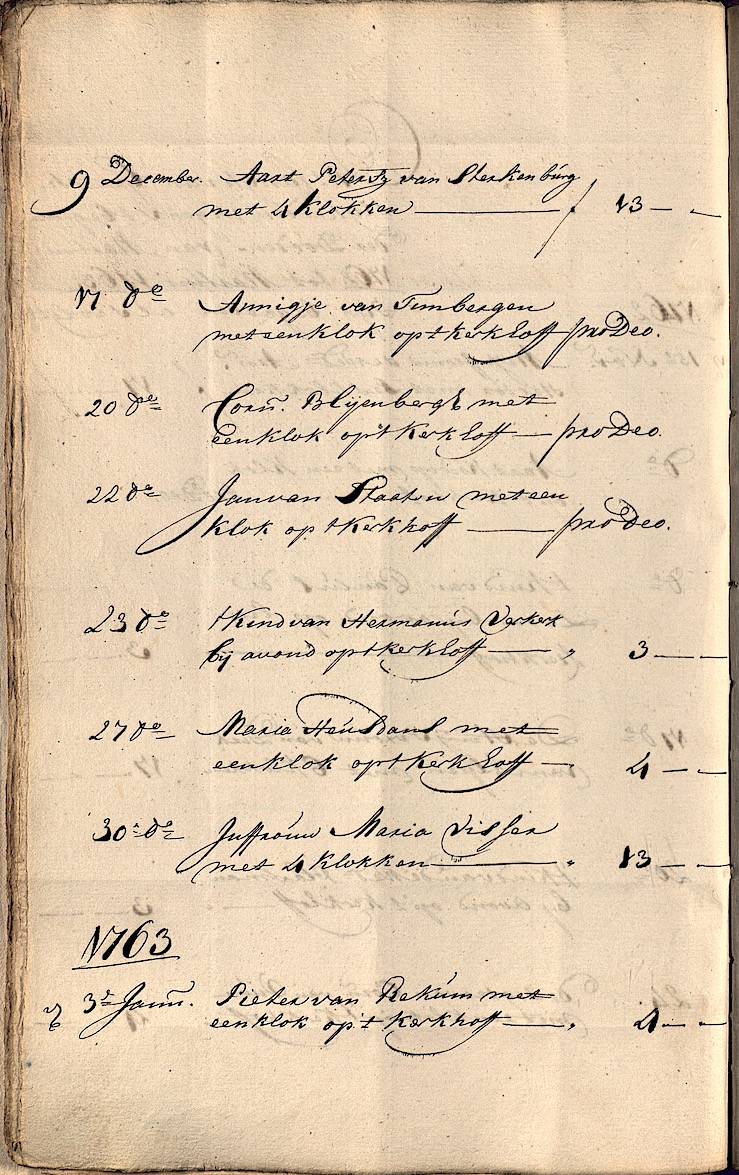 9 December. Aart Petersz van Sterkenburg
met 4 Klokken — f 13 — -
17 de Annigje van Timbergen
met een klok op t kerkhoff pro Deo.
20 de Corn. Blijenbergh met
een klok op 't Kerkhoff — pro Deo.
22 de Jan van Staaten met een
klok op t Kerkhoff — pro Deo.
23 de t Kind van Hermanus Verkerk
bij avond op t kerkhoff — „ 3 — -
27 de Maria Heusdans met
een klok op t Kerkhoff — 4 — -
30 de Juffrouw Maria Visser
met 4 Klokken — „ 13 — -
1763
3e Jann. Pieter van Bekum met
een klok op 't Kerkhoff — „ 4 — -